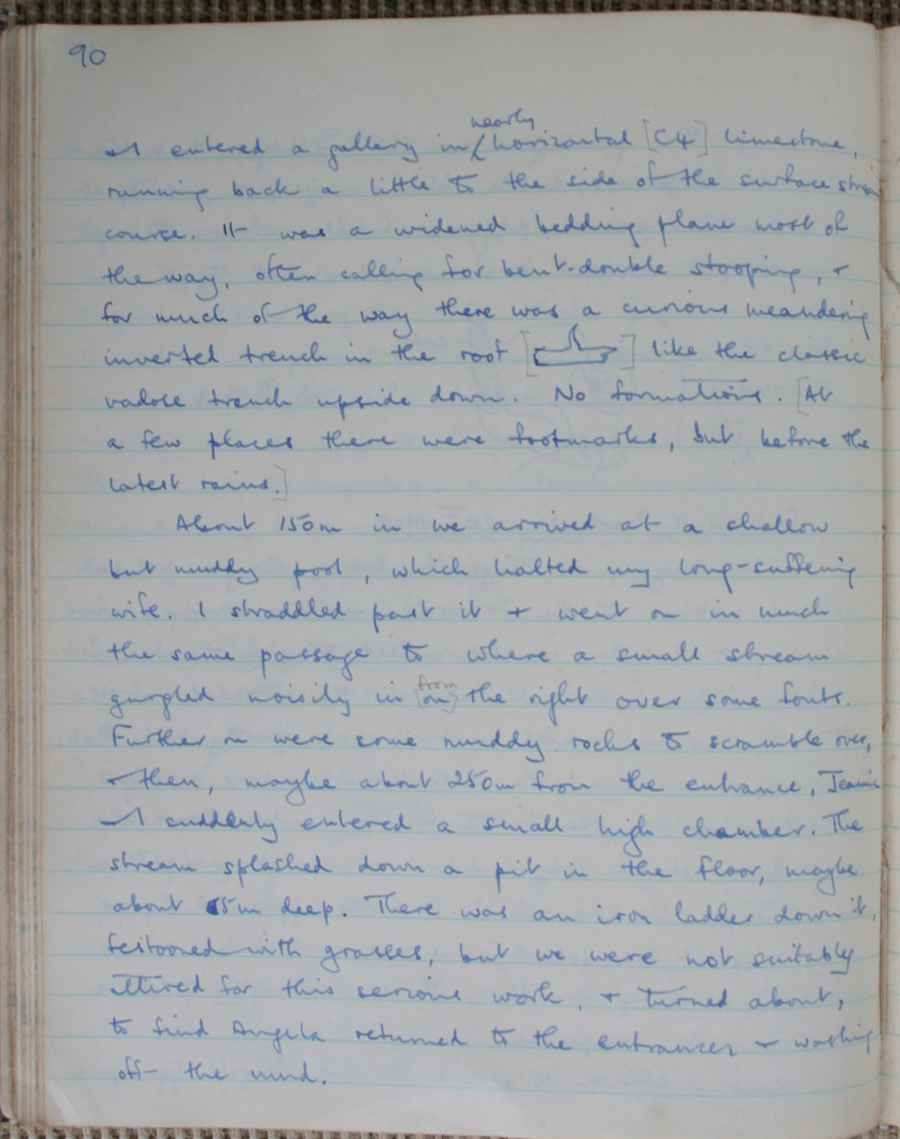 90
nearly
& I entered a gallery in horizontal [C4] limestone,
running back a little to the side of the surface stream
course. It was a widened bedding plane most of
the way, often calling for bent-double stooping, &
for much of the way there was a curious meandering
inverted trench in the roof [ ] like the classic
vadose trench upside down. No formations. [At
a few places there were footmarks, but before the
latest rains.]
About 150m in we arrived at a shallow
but muddy pool, which halted my long-suffering
wife. I straddled past it & went on in much
the same passage to where a small stream
from
gurgled noisily in [on] the right over some fonts.
Further on were some muddy rocks to scramble over,
& then, maybe about 250m from the entrance,
& I suddenly entered a small high chamber. The
stream splashed down a pit in the floor, maybe
about 5m deep. There was an iron ladder down it,
festooned with grasses, but we were not suitably
attired for this serious work, & turned about,
to find Angela returned to the entrances & washing
off the mud.